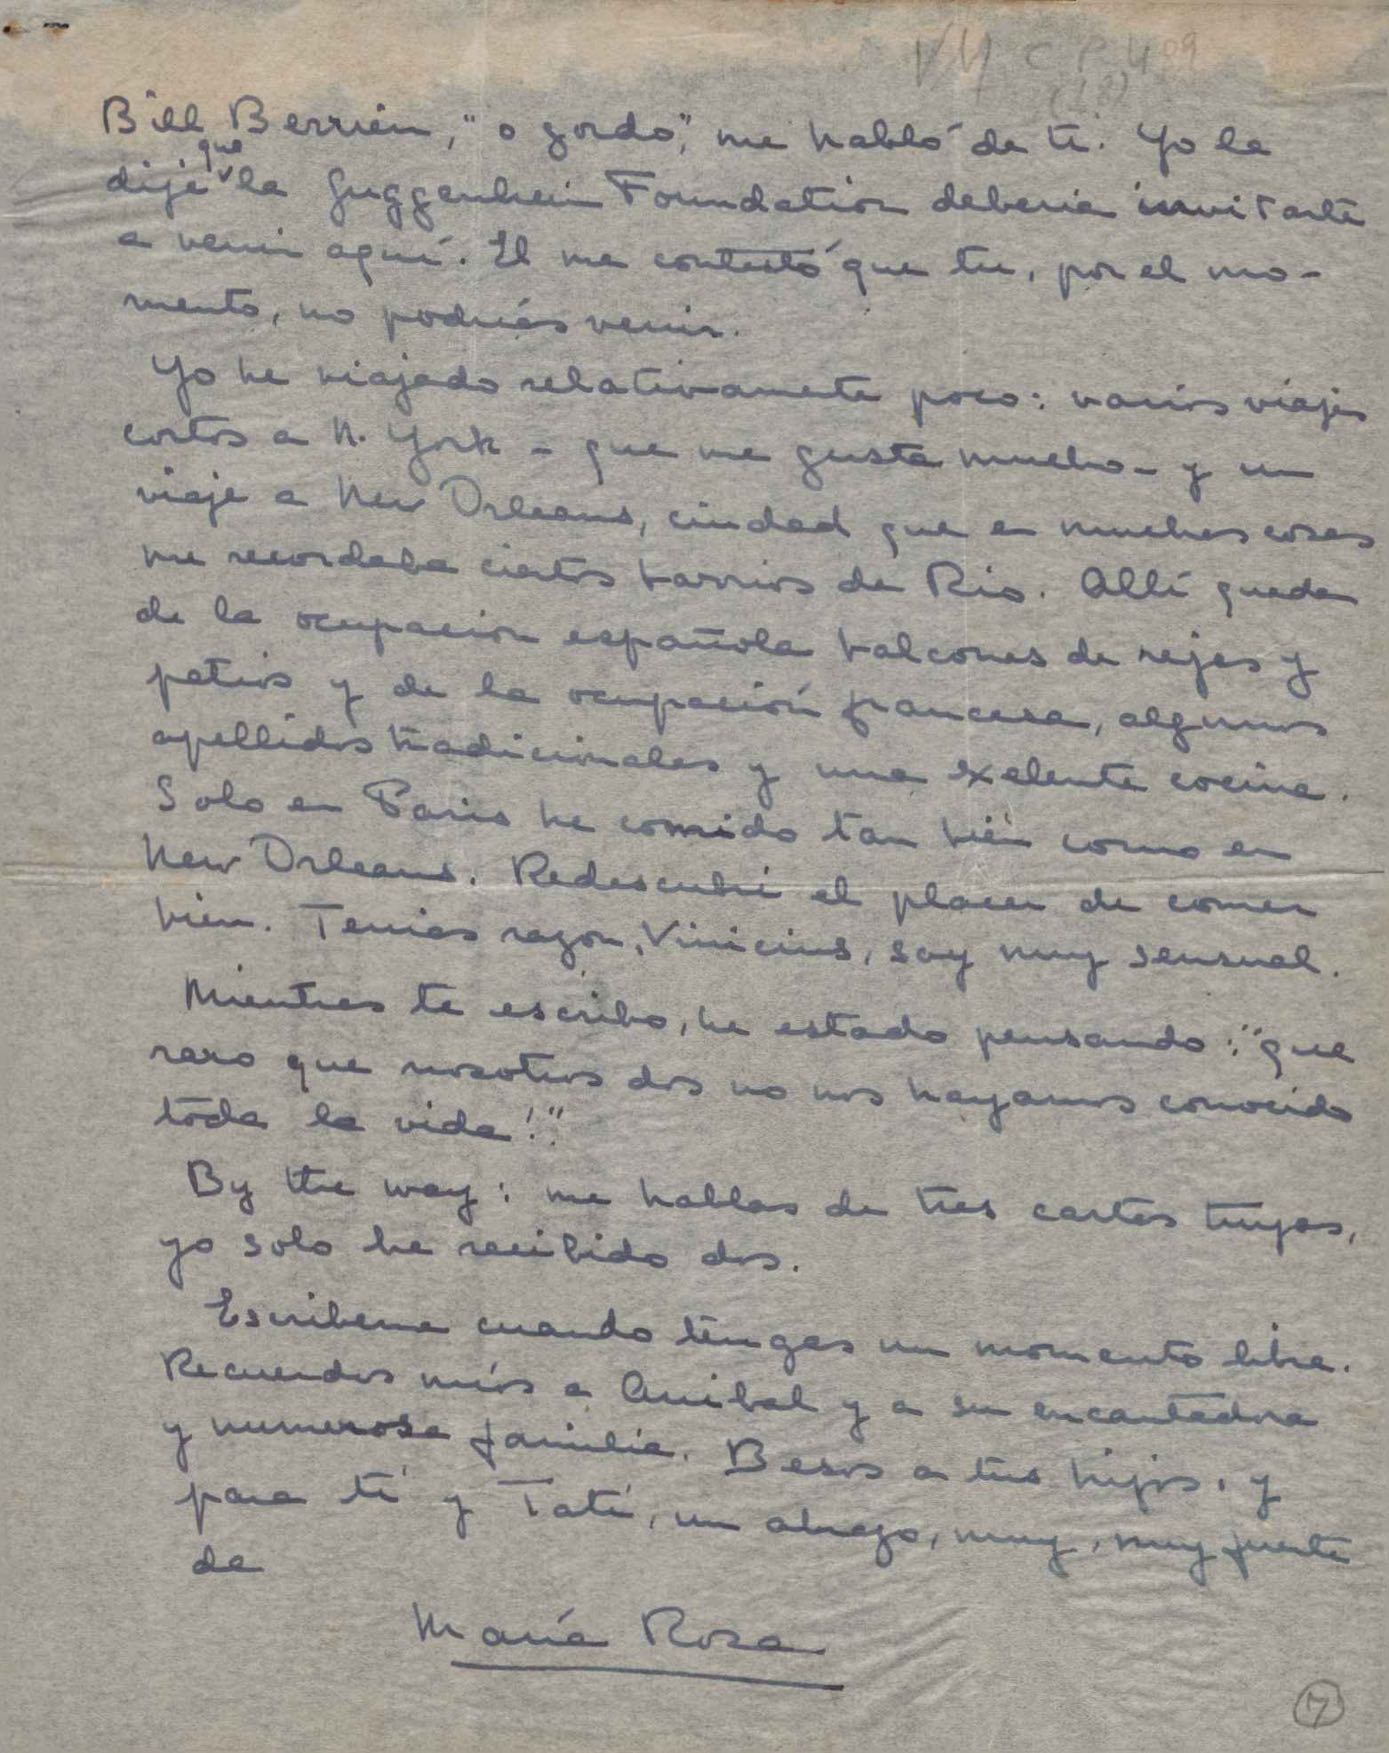 VM CP 409
(18)
Bill Berrien, "o gordo", me habló de ti. Yo le
dije que la Guggenheim Foundation deberia invitarte
a venir aquí. El me contestó que tu, por el mo-
mento, no podrías venir.
Yo he viajado relativamente poco: varios viajes
cortos a N. York - que me gusta mucho - y un
viaje a New Orleans, ciudad que en muchas cosas
me recordaba ciertos barrios de Rio. Allí quedan
de la ocupacion española balcones de rejas y
patios y de la ocupación francesa, algunos
apellidos tradicionales y una exelente cocina.
Solo en Paris he comido tan bien como en
New Orleans. Redescubrí el placer de comer
bien. Tenias razon, Vinicius, soy muy sensual.
Mientras te escribo, he estado pensando: "que
raro que nosotros dos no nos hayamos conocido
toda la vida!"
By the way: me hablas de tres cartas tuyas,
yo solo he recibido dos.
Escribeme cuando tengas un momento libre.
Recuerdos míos a Anibal y a su encantadora
y numerosa familia. Besos a tus hijos, y
para tí y Tatí, un abrazo, muy, muy fuerte
de
María Rosa
7